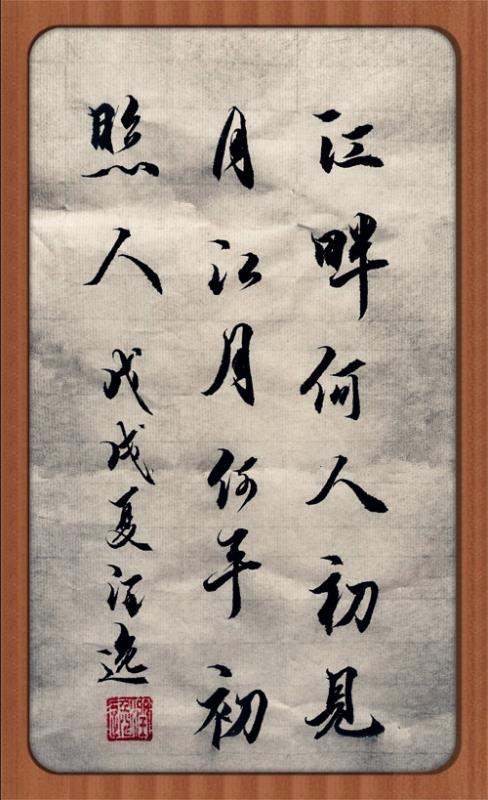 江畔何人初見
月江月何年初
照人 戊戌夏汪逸